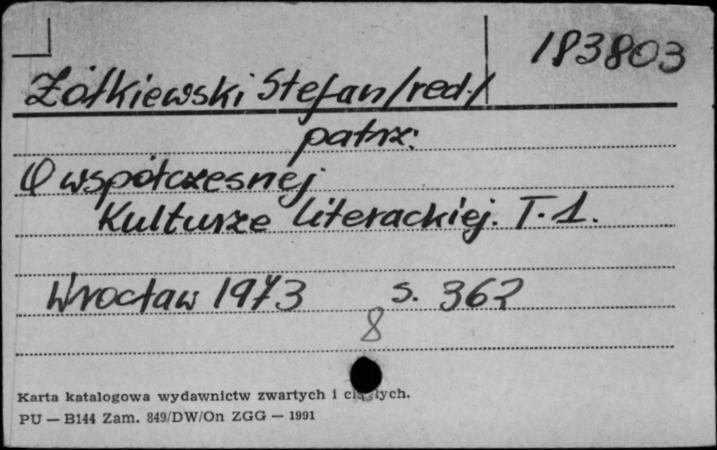 183803
Żółkiewski Stefan/red./
patrz:
O współczesnej
Kulturze literackiej. T. 1.
Wrocław 1973 s. 362
8
Karta katalogowa wydawnictw zwartych i ciągłych.
PU — B144 Zam. 849/DW/On ZGG — 1991